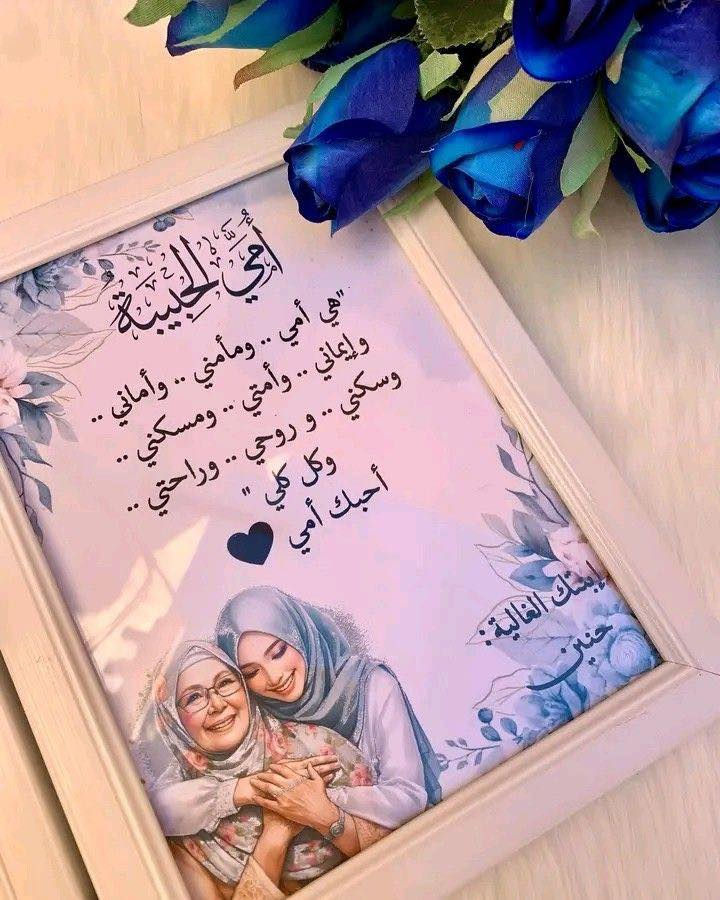 أُمِّيَ الحَبِيبَةُ
"هي أمي .. ومأمني .. وأماني ..
وإيماني .. وأمتي .. ومسكني ..
وسكني .. و روحي .. وراحتي ..
وكل كلي "
أحبك أمي
إبنتك الغالية:
حنين